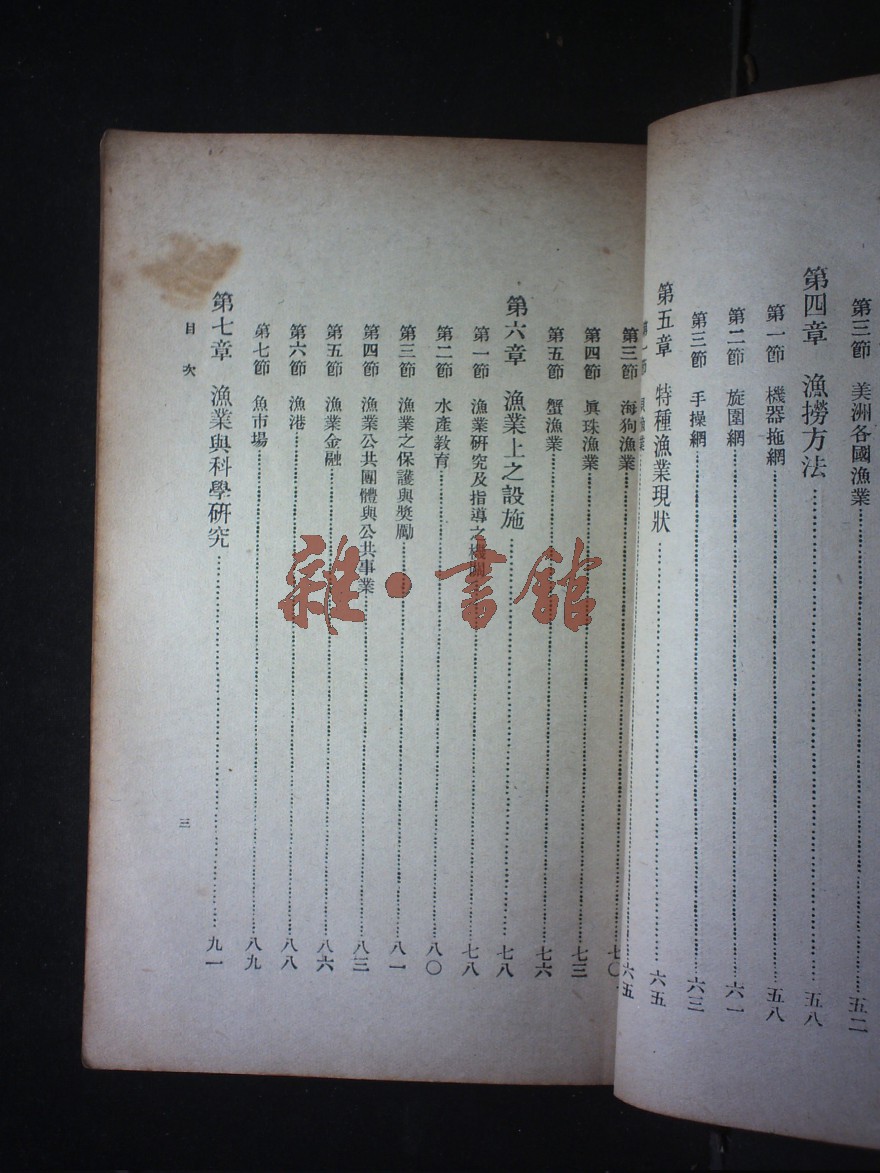 第三節　美洲各國漁業……五二
第四章　漁撈方法……五八
第一節　機器拖網……五八
第二節　旋圍網……六一
第三節　手操網……六三
第五章　特種漁業現狀……六五
第一節……六五
第三節　海狗漁業……七〇
第四節　眞珠漁業……七三
第五節　蟹漁業……七六
第六章　漁業上之設施……七八
第一節　漁業研究及指導之機關……七八
第二節　水產教育……八〇
第三節　漁業之保護與獎勵……八一
第四節　漁業公共團體與公共事業……八三
第五節　漁業金融……八六
第六節　漁港……八八
第七節　魚市場……八九
第七章　漁業與科學研究……九一
目次
三
雜·書館